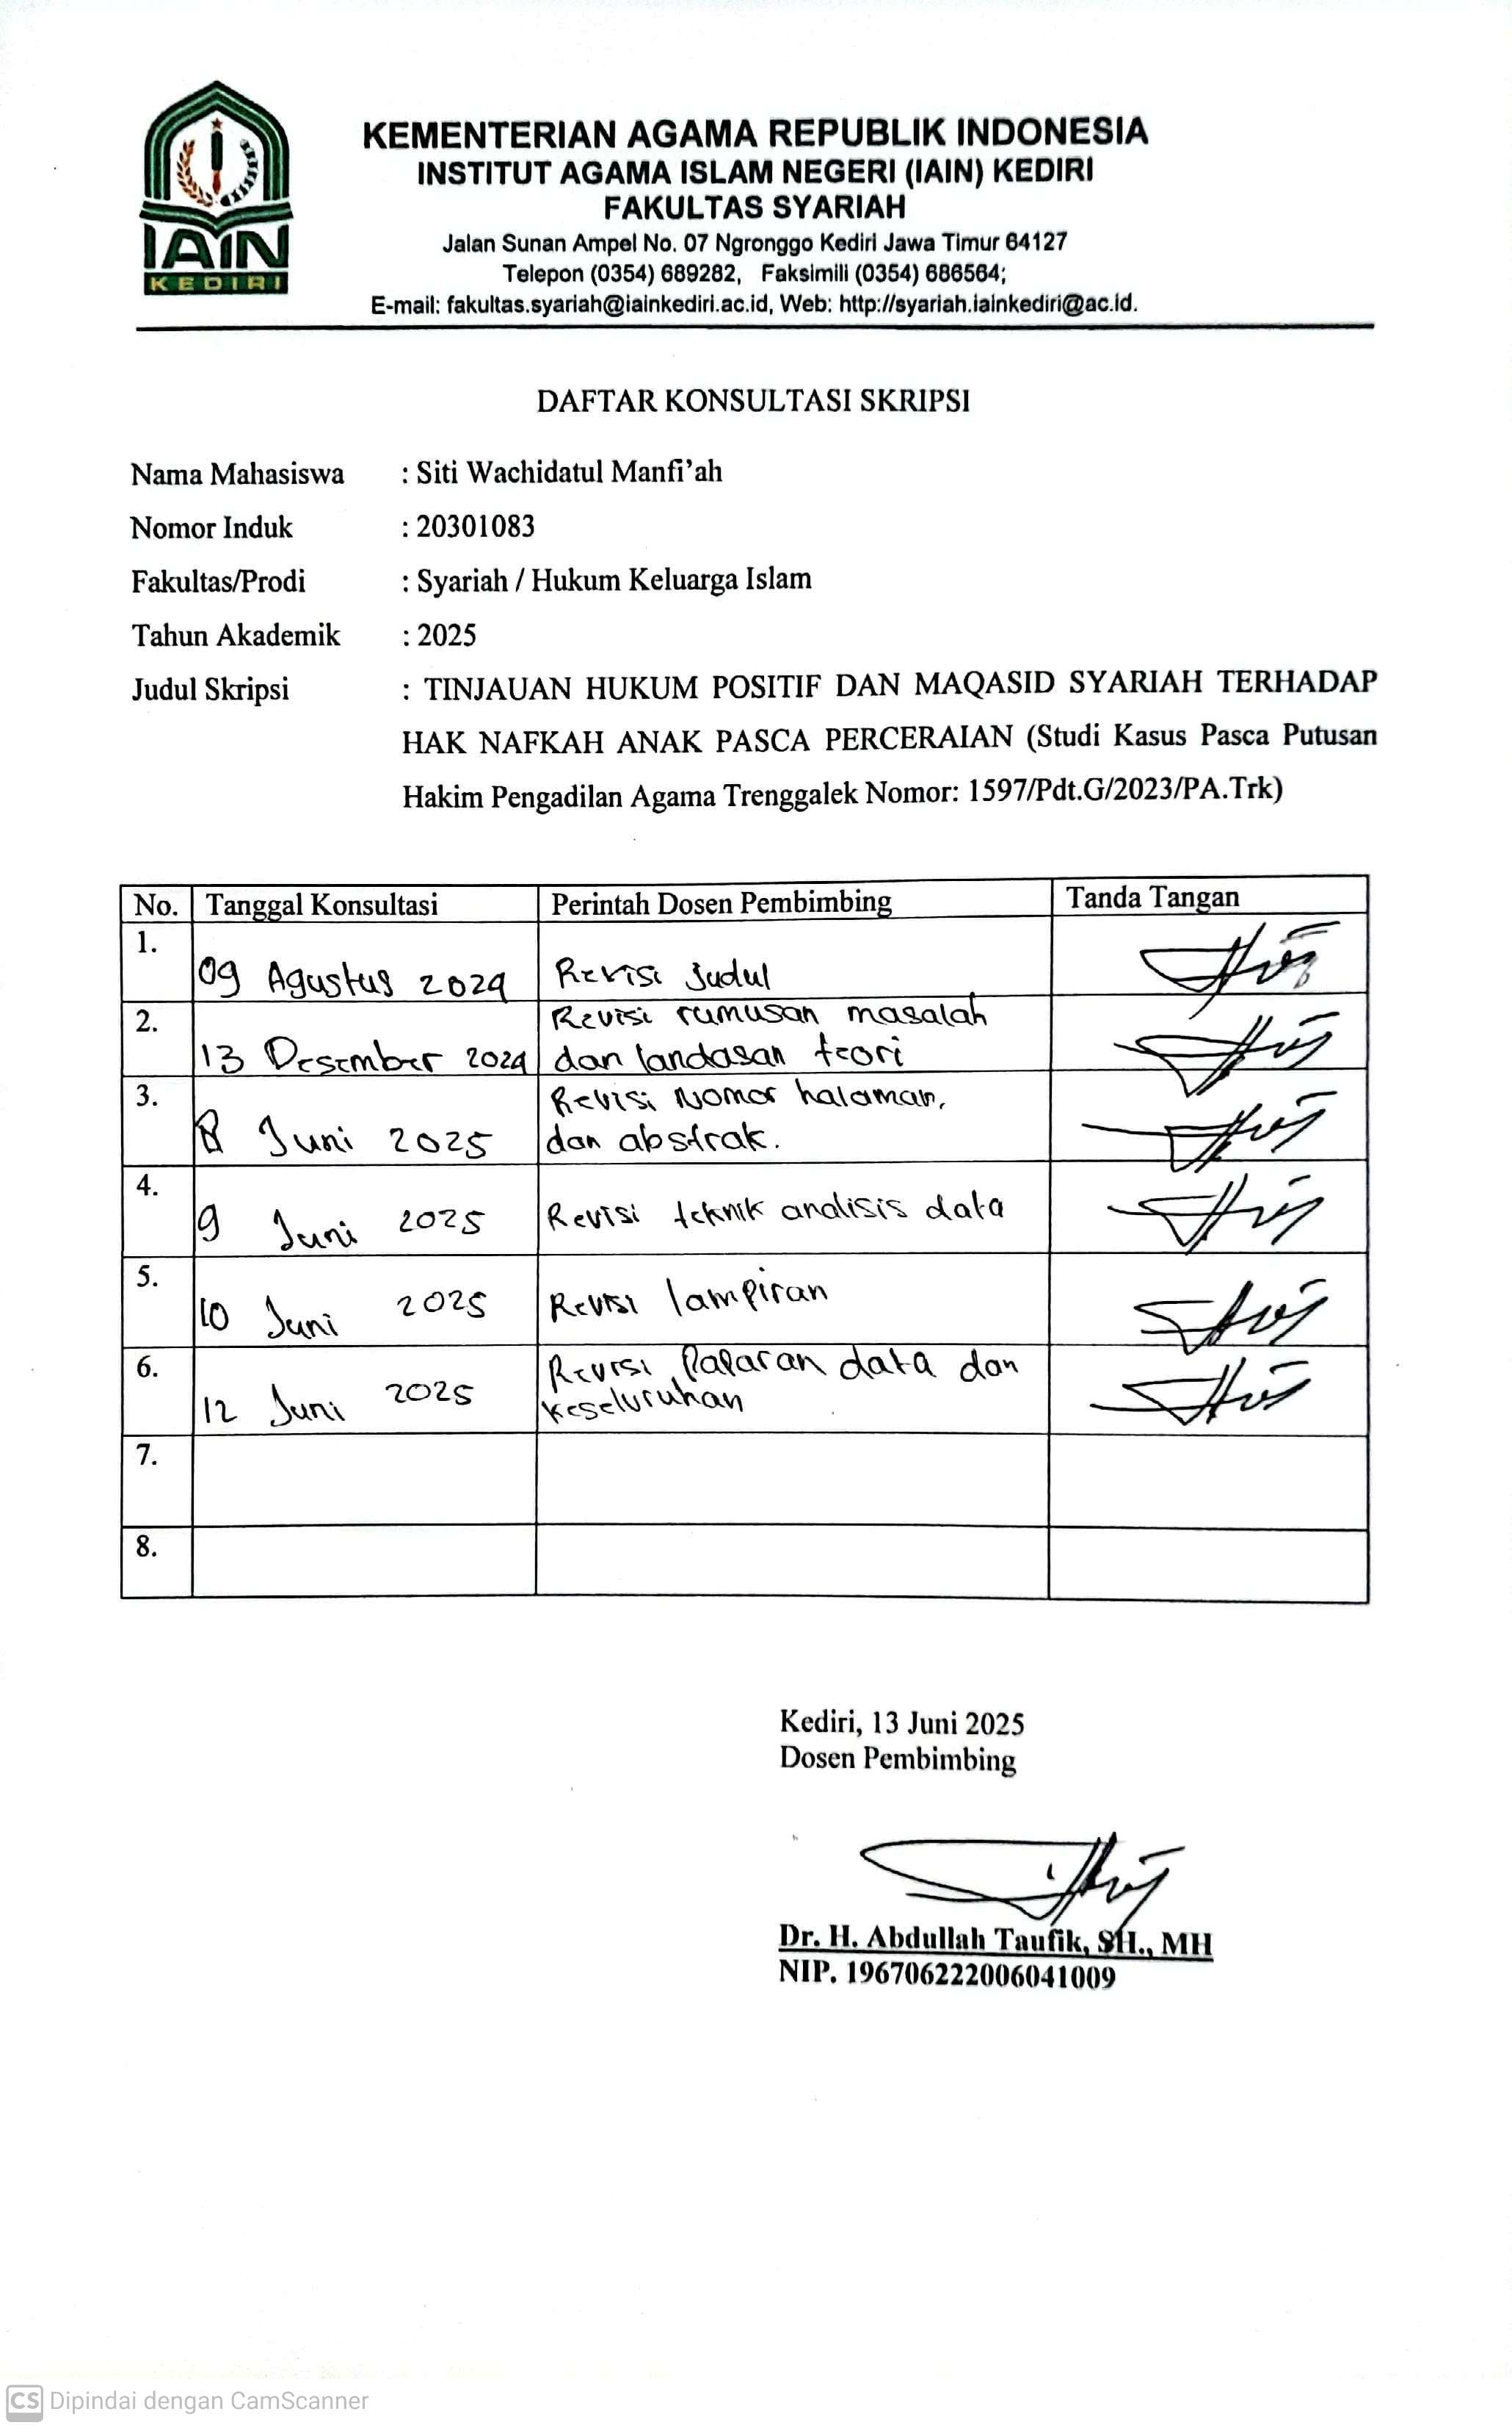 IAIN
KEDIRI
KEMENTERIAN AGAMA REPUBLIK INDONESIA
INSTITUT AGAMA ISLAM NEGERI (IAIN) KEDIRI
FAKULTAS SYARIAH
Jalan Sunan Ampel No. 07 Ngronggo Kediri Jawa Timur 64127
Telepon (0354) 689282, Faksimili (0354) 686564;
E-mail: fakultas.syariah@iainkediri.ac.id, Web: http://syariah.iainkediri@ac.id.
DAFTAR KONSULTASI SKRIPSI
Nama Mahasiswa : Siti Wachidatul Manfi’ah
Nomor Induk : 20301083
Fakultas/Prodi : Syariah / Hukum Keluarga Islam
Tahun Akademik : 2025
Judul Skripsi : TINJAUAN HUKUM POSITIF DAN MAQASID SYARIAH TERHADAP
HAK NAFKAH ANAK PASCA PERCERAIAN (Studi Kasus Pasca Putusan
Hakim Pengadilan Agama Trenggalek Nomor: 1597/Pdt.G/2023/PA.Trk)
No. Tanggal Konsultasi Perintah Dosen Pembimbing Tanda Tangan
1. 09 Agustus 2024 Revisi judul
2. 13 Desember 2024 Revisi rumusan masalah
dan landasan teori
3. 8 Juni 2025 Revisi Nomor halaman,
dan abstrak.
4. 9 Juni 2025 Revisi teknik analisis data
5. 10 Juni 2025 Revisi lampiran
6. 12 Juni 2025 Revisi Paparan data dan
keseluruhan
7.
8.
Kediri, 13 Juni 2025
Dosen Pembimbing
Dr. H. Abdullah Taufik, SH., MH
NIP. 196706222006041009
CS Dipindai dengan CamScanner